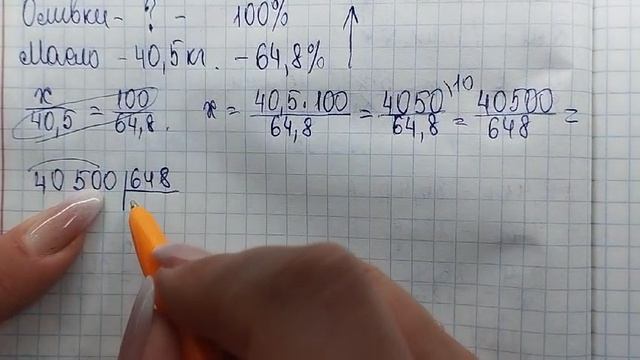 Оливки - ? - 100%
Масло - 40,5 кг. - 64,8%
x/40,5 = 100/64,8. x = 40,5·100/64,8 = 4050\10/64,8 = 40500/648 =
40500 648